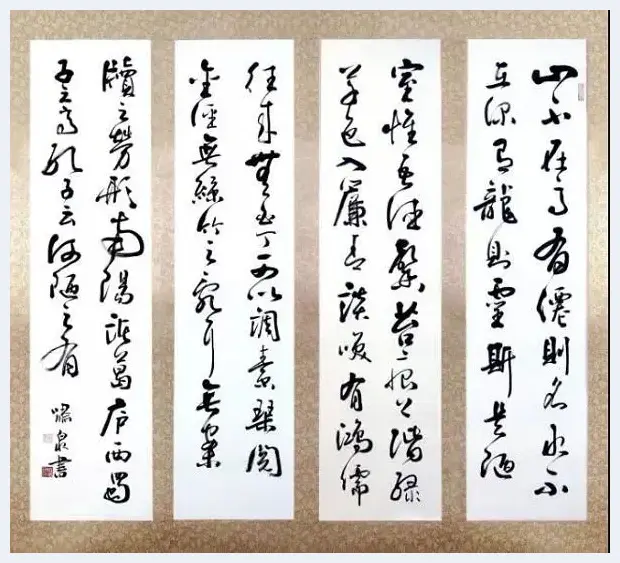 山不在高有僊則名水不
在深有龍則靈斯是陋
室惟吾德馨苔痕上階綠
草色入簾青談笑有鴻儒
往來無白丁可以調素琴閱
金經無絲竹之亂耳無案
牘之勞形南陽諸葛庐西蜀
子云亭孔子云何陋之有
泉書